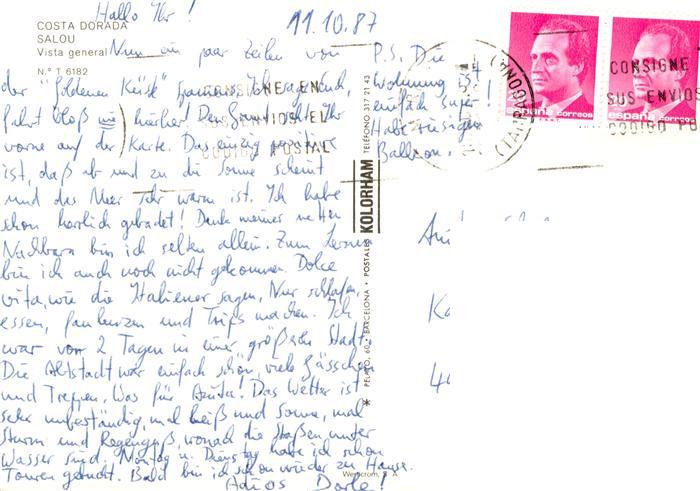 Hallo Ihr!
11.10.87
COSTA DORADA
SALOU
Vista general
N.º T 6182
Nun ein paar Zeilen von
der "Goldenen Küste" Spaniens. Ich sag Euch,
fahrt bloß nie hierher! Den Strand seht Ihr
vorne auf der Karte. Das einzig
ist, daß ab und zu die Sonne scheint
und das Meer sehr warm ist. Ich habe
schon herrlich gebadet! Dank meiner netten
Nachbarn bin ich selten allein. Zum Lernen
bin ich auch noch nicht gekommen. Dolce
vita, wie die Italiener sagen, Nur schlafen,
essen, faulenzen und Trips machen. Ich
war vor 2 Tagen in einer größeren Stadt.
Die Altstadt war einfach schön, viele Gässchen
und Treppen. Was für Anita! Das Wetter ist
sehr unbeständig, mal heiß und Sonne, mal
Sturm und Regenguß, wonach die Straßen unter
Wasser sind. Montag u. Dienstag habe ich schon
Touren gebucht. Bald bin ich schon wieder zu Hause.
Adios Dorle!
P.S. Die
Wohnung ist
einfach super!
Habe riesigen
Balkon.
TELÉFONO 317 21 43
KOLORHAM
POSTALES
PELAYO, 60 • BARCELONA
CONSIGNE EN
SUS ENVIOS EL
CODIGO POSTAL
(TARRAGONA)
CONSIGNE
SUS ENVIOS
CODIGO PO
españa correos
españa correos